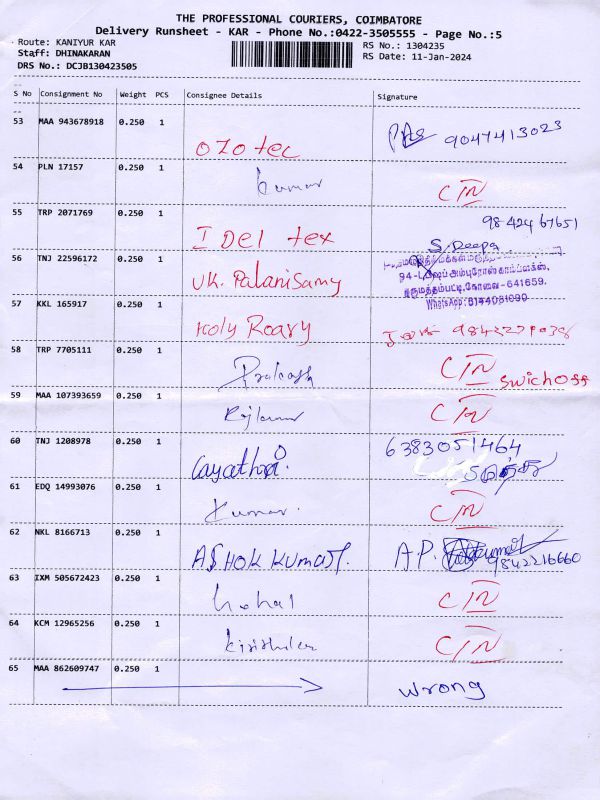 THE PROFESSIONAL COURIERS, COIMBATORE
Delivery Runsheet - KAR - Phone No.:0422-3505555 - Page No.:5
Route: KANIYUR KAR
RS No.: 1304235
Staff: DHINAKARAN
RS Date: 11-Jan-2024
DRS No.: DCJB130423505
S No Consignment No Weight PCS Consignee Details Signature
53 MAA 943678918 0.250 1 OZOtec 9047413023
54 PLN 17157 0.250 1 kumar C/N
55 TRP 2071769 0.250 1 I Del tex 98 424 67651
S. Deepa
56 TNJ 22596172 0.250 1 VK. Palanisamy
கருமத்தம்பட்டி,கோவை-641659.
WhatsApp: 8144081090
57 KKL 165917 0.250 1 Holy Roary
58 TRP 7705111 0.250 1 Prakash C/N swichoff
59 MAA 107393659 0.250 1 Rjkumar C/N
60 TNJ 1208978 0.250 1 Gayathri. 6383051464
61 EDQ 14993076 0.250 1 Kumar. C/N
62 NKL 8166713 0.250 1 ASHOK KUMAR. A.P. 9842216660
63 IXM 505672423 0.250 1 C/N
64 KCM 12965256 0.250 1 C/N
65 MAA 862609747 0.250 1 wrong